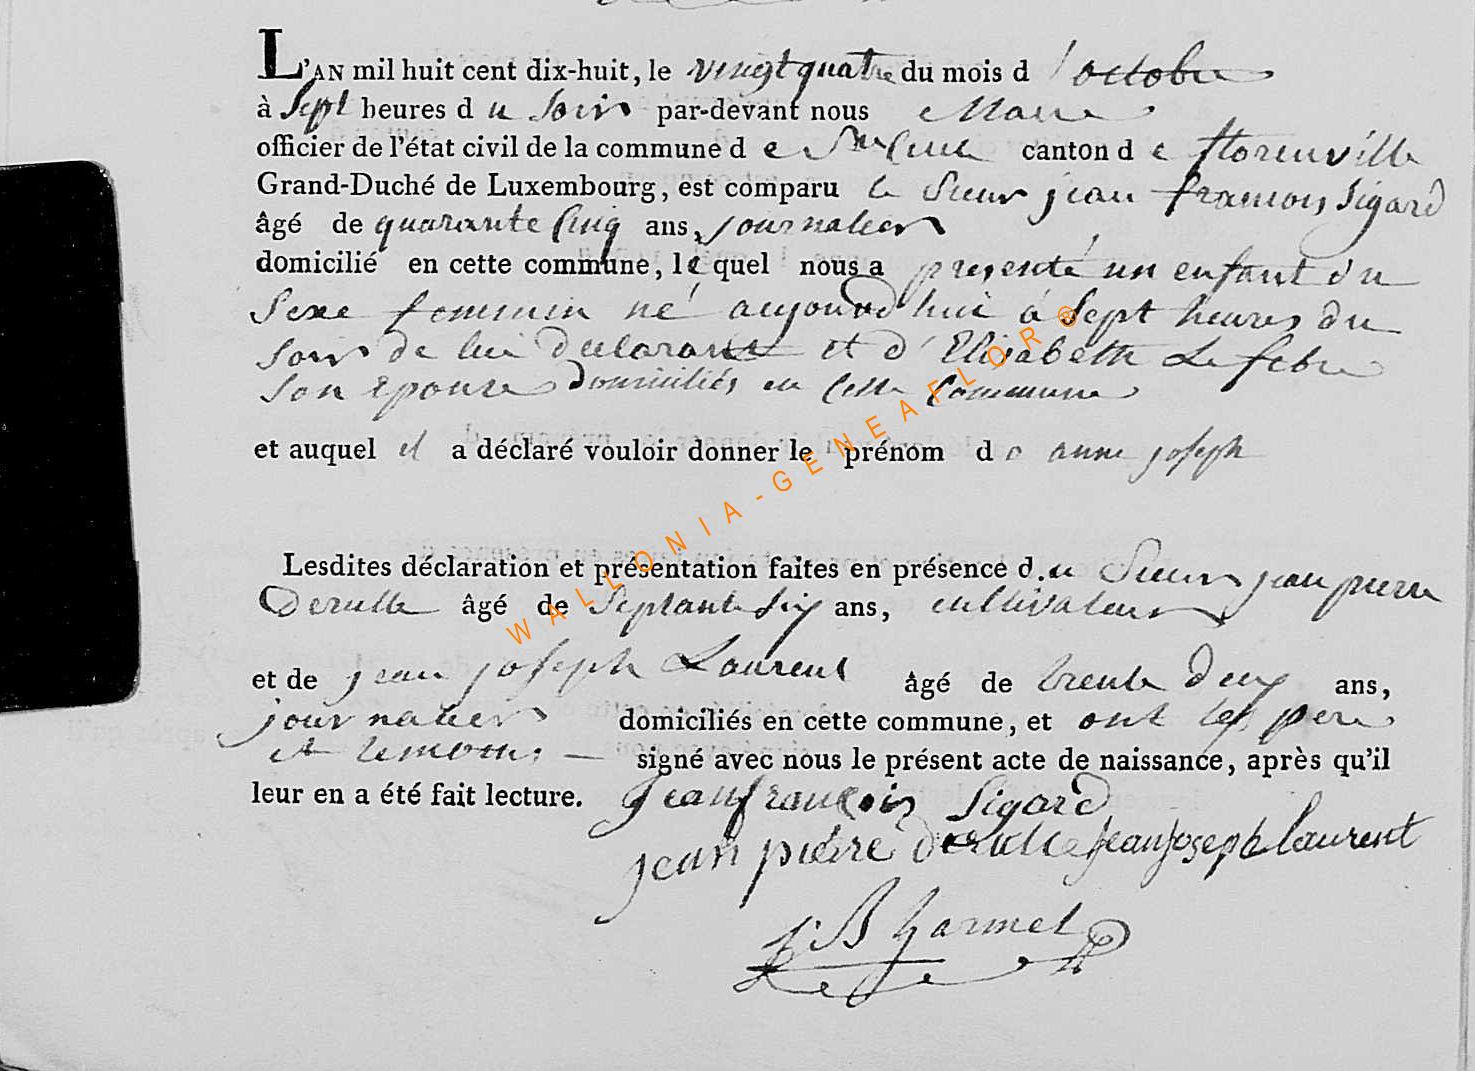 L'AN mil huit cent dix-huit, le vingt quatre du mois d'octobre
à Sept heures du soir par-devant nous Maire
officier de l'état civil de la commune de Ste Cecile canton de florenville
Grand-Duché de Luxembourg, est comparu le Sieur jean francois Sigard
âgé de quarante Cinq ans, journalier
domicilié en cette commune, le quel nous a présenté un enfant du
Sexe feminin né aujourd'hui à Sept heures du
soir de lui Declarant et d'Elisabeth Lefebre
son epouse domiciliés en cette Commune
et auquel il a déclaré vouloir donner le prénom de anne joseph
Lesdites déclaration et présentation faites en présence du Sieur jean pierre
Derulle âgé de Septante Six ans, cultivateur
et de jean joseph Laurent âgé de trente Deux ans,
journalier domiciliés en cette commune, et ont les pere
et temoins signé avec nous le présent acte de naissance, après qu'il
leur en a été fait lecture. Jean francois Sigard
jean pierre derulle jean joseph laurent
J B Harmel
WALLONIA-GENEAFLOR®